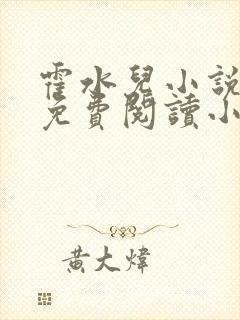 霍水兒小說
免費閱讀小
黃大煒